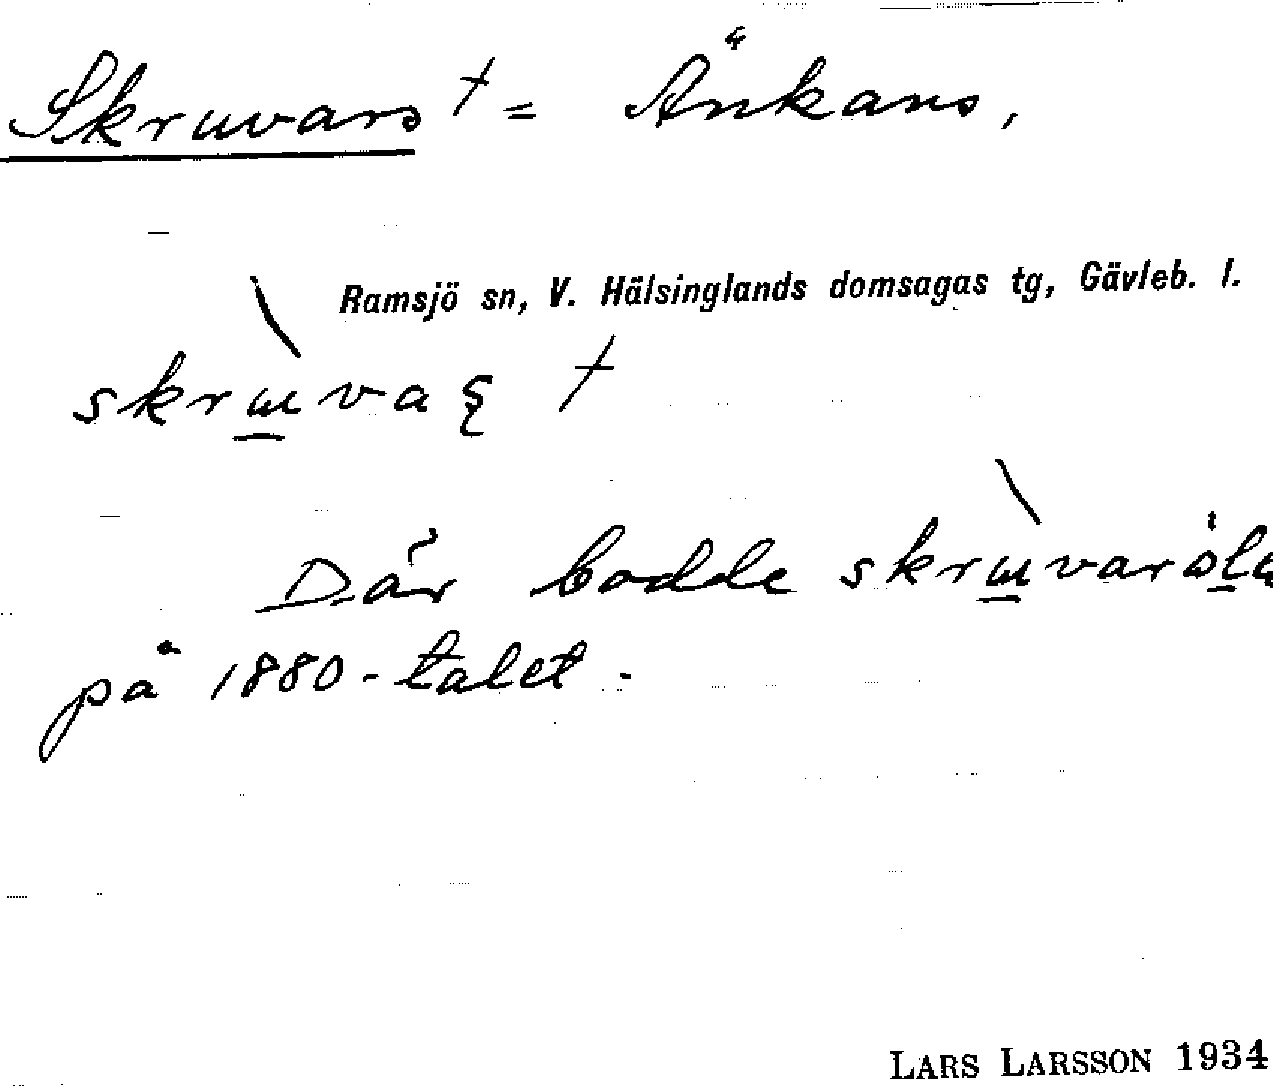 Skruvars † = Änkans,
Ramsjö sn, V. Hälsinglands domsagas tg, Gävleb. l.
skruvaş †
Där bodde
på 1880-talet.
LARS LARSSON 1934